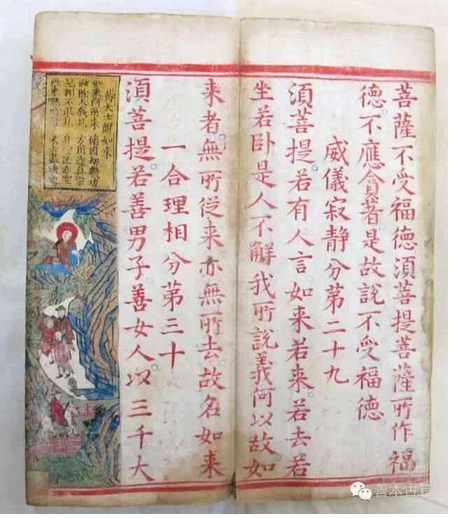 菩薩不受福德須菩提菩薩所作福
德不應貪著是故說不受福德
威儀寂静分第二十九
須菩提若有人言如来若来若去若
坐若卧是人不解我所說義何以故如
来者無所從来亦無所去故名如来
一合理相分第三十
須菩提若善男子善女人以三千大
善本古籍